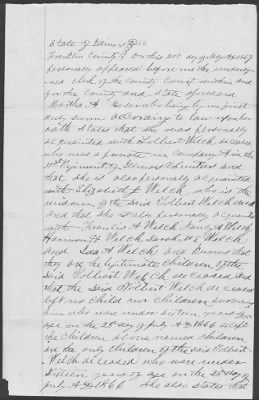 State of Illinois } SS
Franklin County } On this day of May AD 1867
personally appeared before me the undersig-
ned clerk of the County Court within and
for the County and State aforesaid
Martha A who being by me first
duly sworn according to law upon her
oath States that she was personally
acquainted with Tolbert Welch deceased
who was a private in Company in the
Regiment of Illinois Volunteers and
that she is also personally acquainted
with Elizabeth Welch who is the
widow of the Said Tolbert Welch deceased
and that She is also personally acquainted
with A Welch Nancy Welch
Harmon Welch Sarah E Welch
and Ida A Welch and knows that
they are the legitimate children of the
Said Tolbert Welch deceased and
that the Said Tolbert Welch deceased
left no child nor Children surviving
him who were under sixteen years of
age on the 25 day of July AD 1866 except
the Children above named children
are the only Children of the said Tolbert
Welch deceased who were under
sixteen years of age on the 25 day of
July AD 1866 She also states that